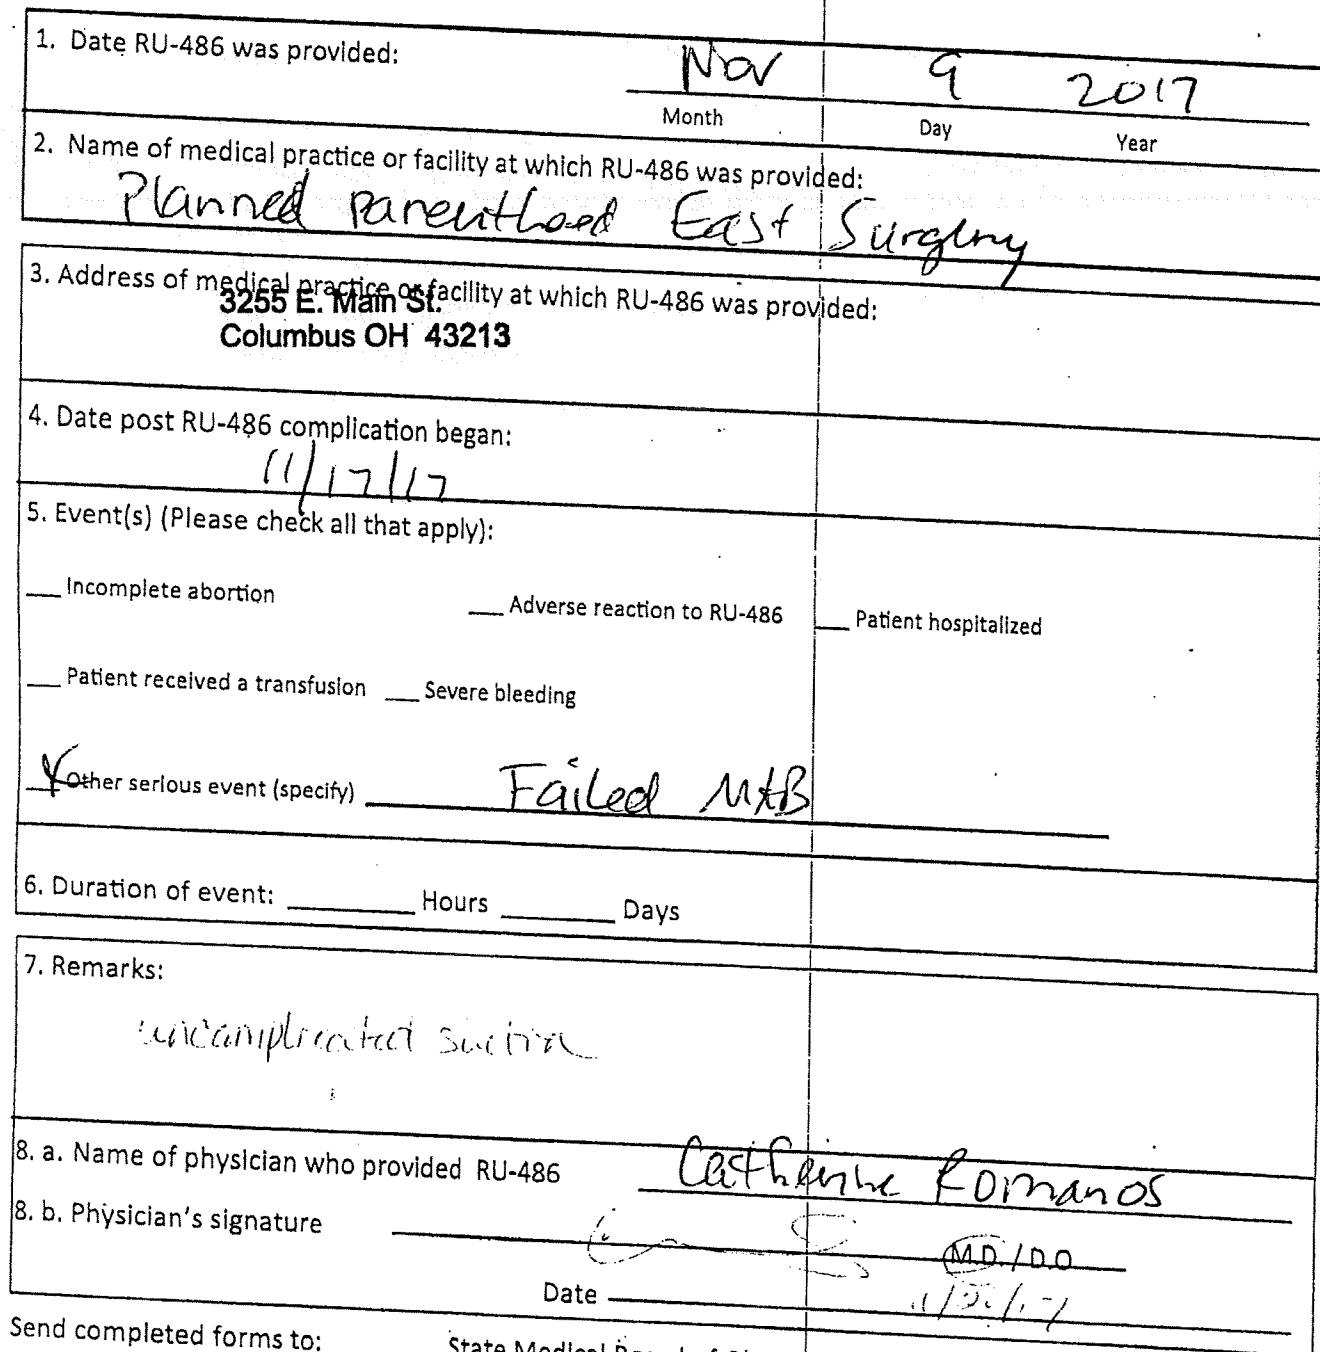 1. Date RU-486 was provided:
Nov 9 2017
Month Day Year
2. Name of medical practice or facility at which RU-486 was provided:
Planned Parenthood East Surgery
3. Address of medical practice or facility at which RU-486 was provided:
3255 E. Main St.
Columbus OH 43213
4. Date post RU-486 complication began:
11/17/17
5. Event(s) (Please check all that apply):
Incomplete abortion Adverse reaction to RU-486 Patient hospitalized
Patient received a transfusion Severe bleeding
X Other serious event (specify) Failed MAB
6. Duration of event: Hours Days
7. Remarks:
uncomplicated suction
8. a. Name of physician who provided RU-486 Catherine Romanos
8. b. Physician's signature
M.D. / D.O
Date
Send completed forms to: State Medical Board of